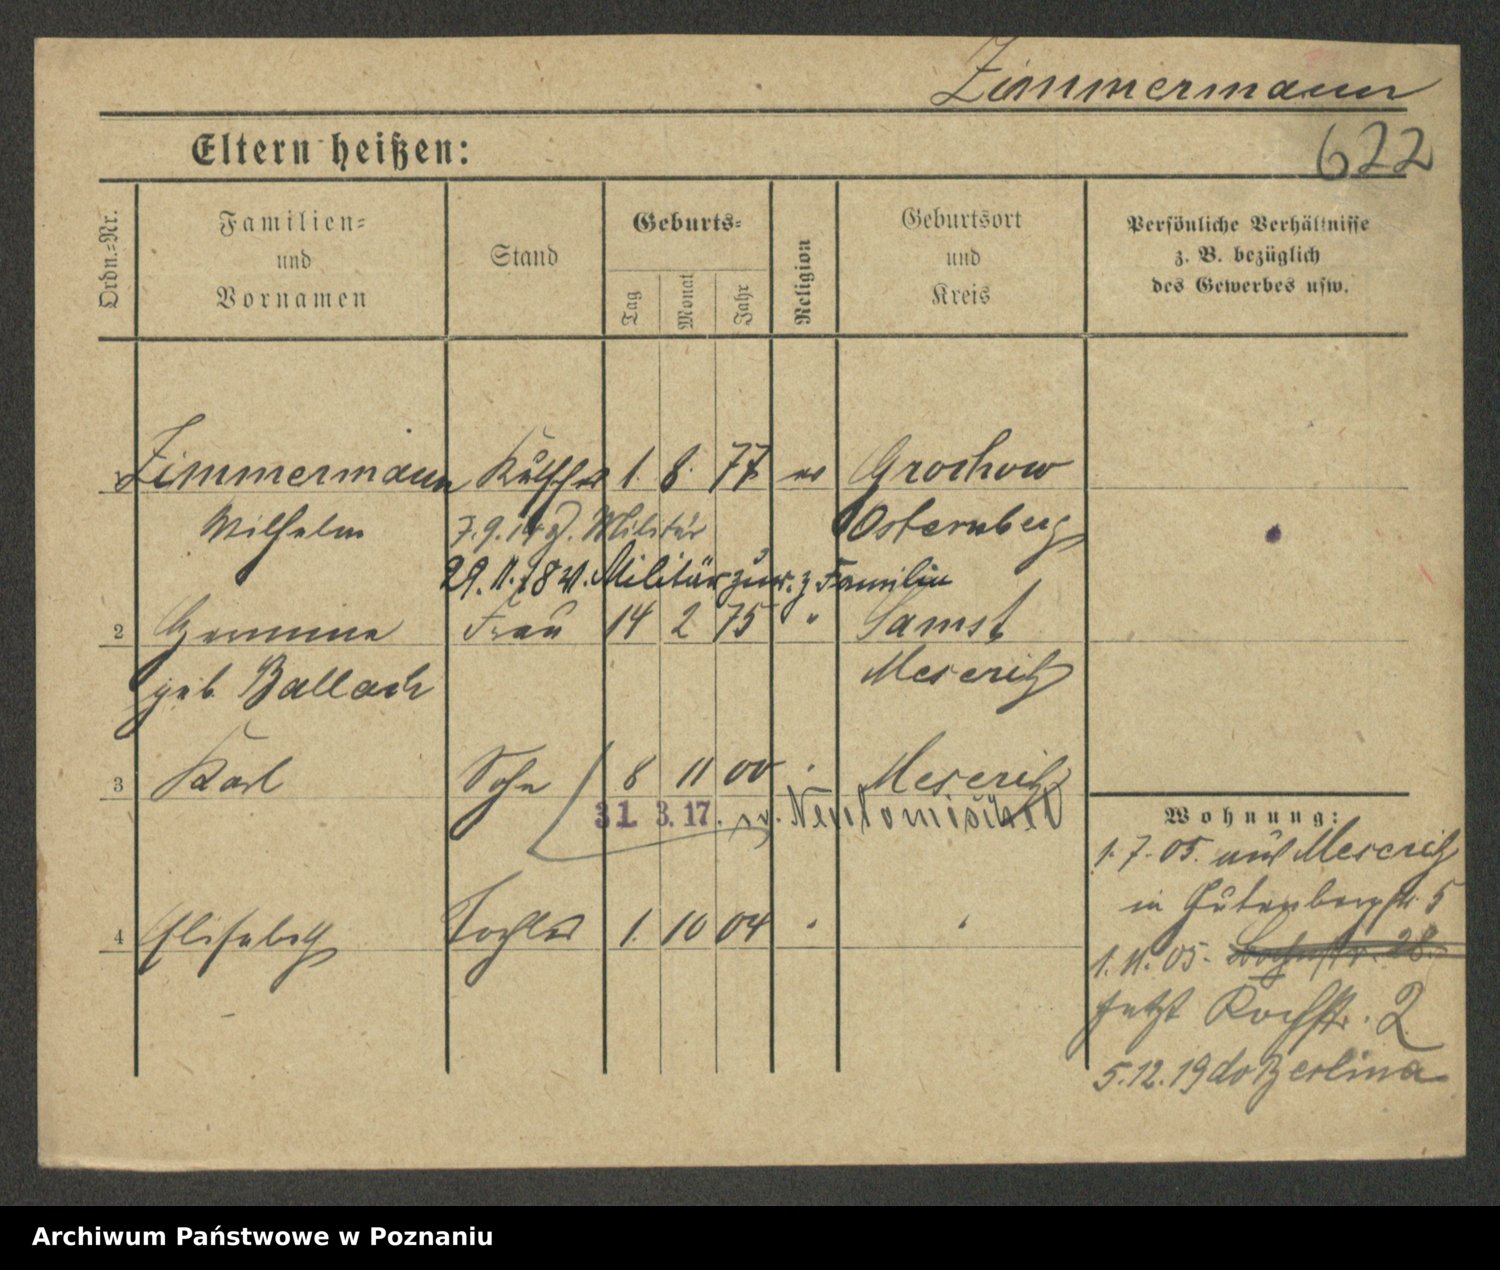 Zimmermann
622
Eltern heißen:
Ordn.-Nr.
Familien-
und
Vornamen
Stand
Geburts-
Tag
Monat
Jahr
Religion
Geburtsort
und
Kreis
Persönliche Verhältnisse
z. B. bezüglich
des Gewerbes usw.
1 Zimmermann Kutscher 1. 8. 77 ev Grochow
Wilhelm Osternberg
7.9.14 z. Militär
29.11.18 v. Militär zur. z. Familie
2 Frau 14 2 75 "
geb. Ballach Meseritz
3 Karl Sohn 8 11 00 " Meseritz
31. 3. 17. n. Neutomischel
4 Elisabeth Tochter 1. 10 04 " "
Wohnung:
1.7.05. aus Meseritz
in Gutenbergstr. 5
1.11.05. 28.
jetzt Kochstr. 2
5.12.19 do Berlina
Archiwum Państwowe w Poznaniu